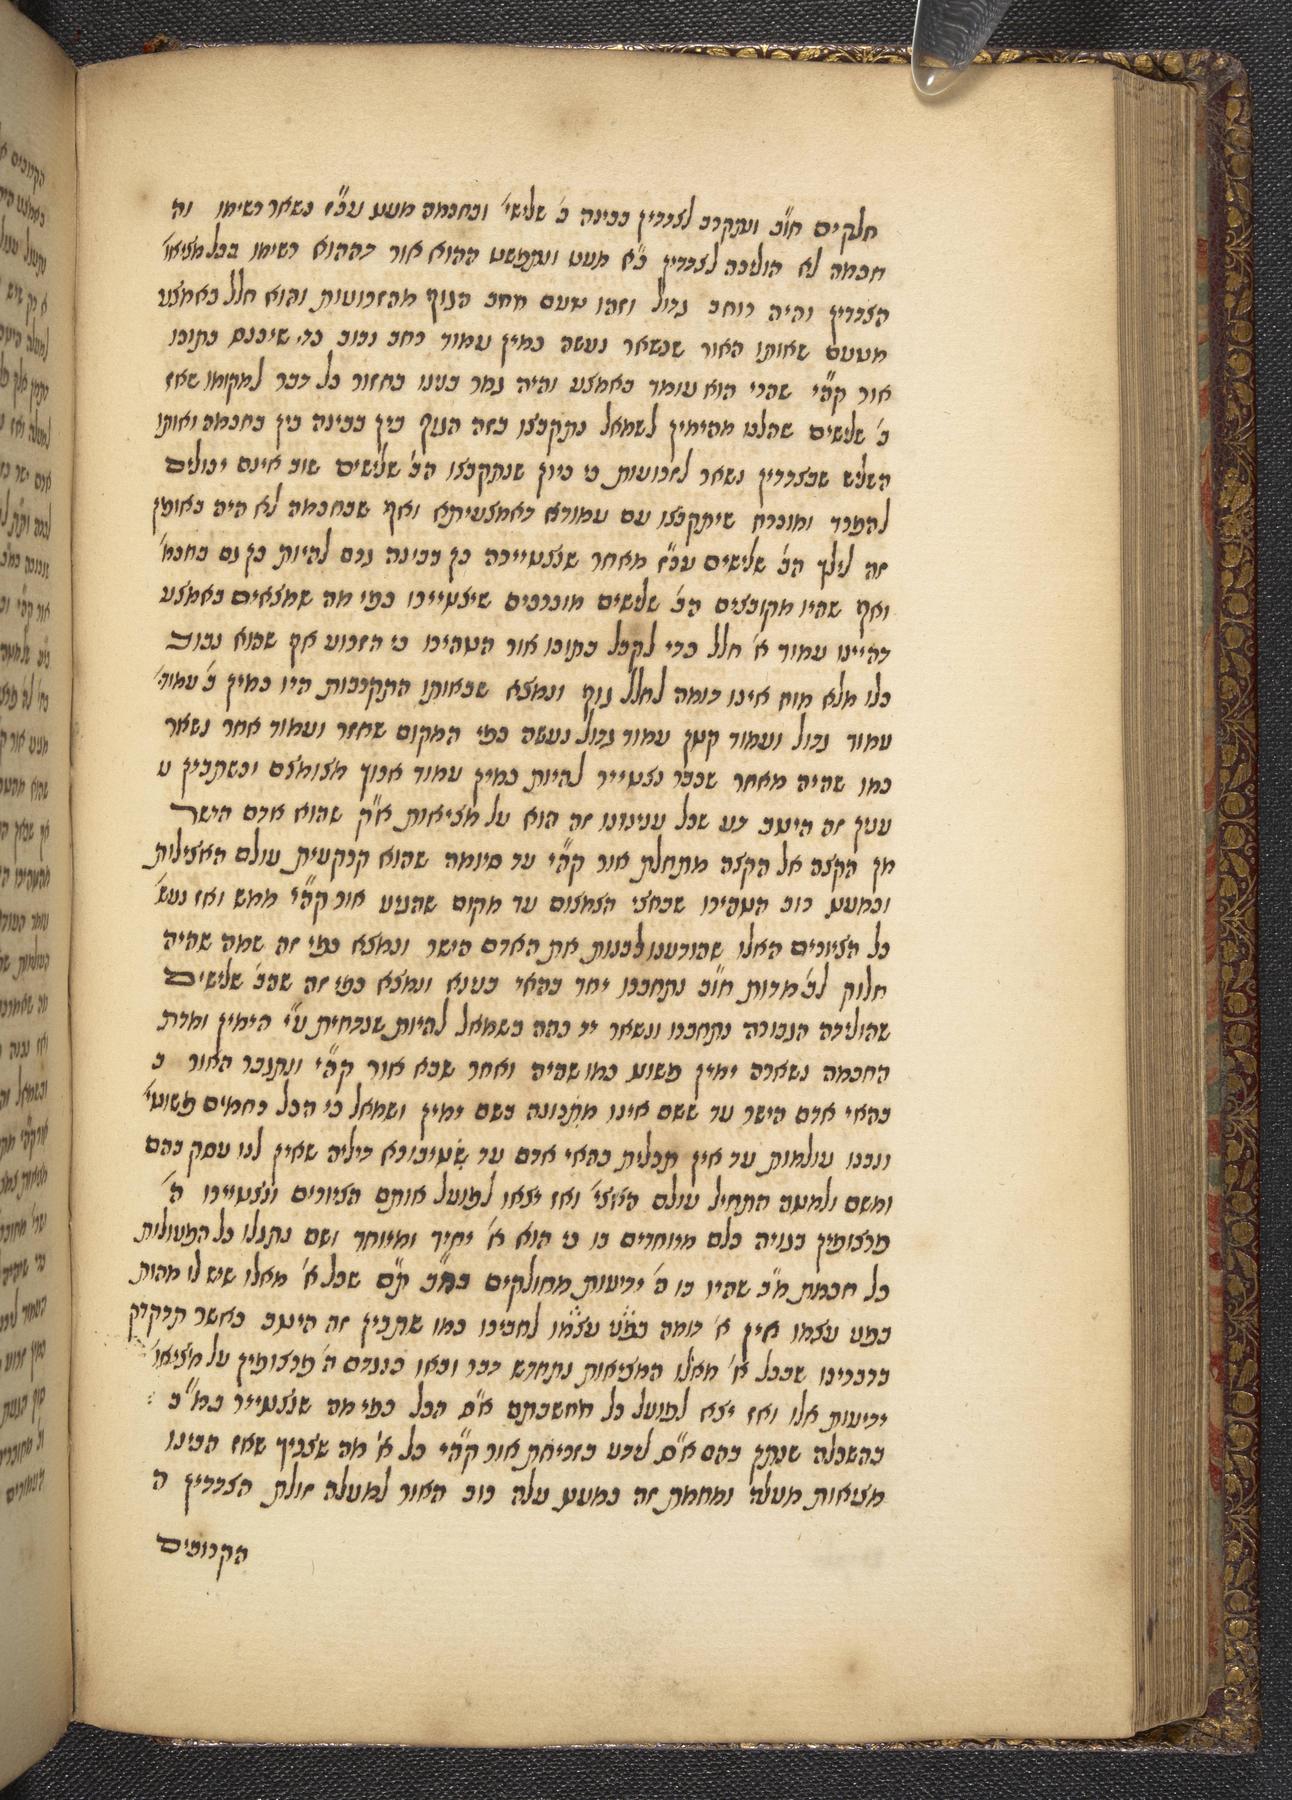 חלקים חו"ב ונתקרב לצדדין בבינה ב' שלישי' ובחכמה מעט עכ"ז נשאר רשימו וה
חכמה לא הוליכה לצדדין כ"א מעט ונתפשט ההוא אור דההוא רשימו בכל מציאו'
הצדדין והיה רוחב גדול וזהו טעם מחב הגוף מהזרועות והוא חלל באמצע
מטעם שאותו האור שנשאר נעשה כמין עמוד רחב נבוב כדי שיכנס בתוכו
אור קה"י שהרי הוא עומד באמצע והיה גמר בנינו בחזור כל דבר למקומו שאז
ב' שלישים שהלכו מהימין לשמאל נתקבצו בזה הגוף בין בבינה בין בחכמה ואותו
השליש שבצדדין נשאר לזרועות כי כיון שנתקבצו הב' שלישים שוב אינם יכולים
להפרד ומוכרח שיתקבצו עם עמודא דאמצעיתא ואף שבחכמה לא היה באופן
זה לילך הב' שלישים עכ"ז מאחר שנצטיירה כך בבינה גרם להיות כן גם בחכמ'
ואף שהיו מקובצים הב' שלישים מוכרחים שיצטיירו כפי מה שמצאים באמצע
דהיינו עמוד א' חלל כדי לקבל בתוכו אור הטהירו כי הזרוע אף שהוא נבוב
כלו מלא מוח אינו דומה לחלל גוף ונמצא שבאותו התקרבות היו כמין ב' עמודי'
עמוד גדול ועמוד קטן עמוד גדול נעשה כפי המקום שחזר ועמוד אחר נשאר
כמו שהיה מאחר שכבר נצטייר להיות כמין עמוד ארוך מצומצם וכשתבין ע
ענין זה היטב דע שכל ענינינו זה הוא על מציאות א"ק שהוא אדם הישר
מן הקצה אל הקצה מתחלת אור קה"י עד סיומה שהוא קרקעית עולם האצילות
וכמעט רוב הטהירו שבחצי הצמצום עד מקום שהגיע אור קה"י ממש ואז נעש'
כל הציורים האלו שהודענו לבנות את האדם הישר ונמצא כפי זה שמה שהיה
חלוק לב' מדות חו"ב נתחברו יחד בהאי בענא ונמצא כפי זה שהב' שלישים
שהולידה הגבורה נתחברו ונשאר יד כהה בשמאל להיות שנדחית ע"י הימין ומדת
החכמה נשארה ימין פשוט כמו שהיה ואחר שבא אור קה"י ונתגבר האור ב
בהאי אדם הישר עד ששם אינו מתכונה בשם ימין ושמאל כי הכל רחמים פשוטי'
ונבנו עולמות עד אין תכלית בהאי אדם עד טיבורא דיליה שאין לנו עסק בהם
ומשם ולמטה התחיל עולם האצי' ואז יצאו לפועל אותם הציורים ונצטיירו ה'
פרצופין בנויה כלם מיוחדים בו כי הוא א' יחיד ומיוחד ושם נתגלו כל הפעולות
כל חכמת מ"ב שהיו בו ה' ידיעות מחולקים שכל א' מאלו שיש לו מהות
בפני עצמו אין א' דומה לחבירו כמו שתבין זה היטב כאשר תדקדק
בדברינו שבכל א' מאלו המציאות נתחדש דבר ובאו כנגדם ה' פרצופין על מציאו'
ידיעות אלו ואז יצא לפועל כל מחשבתם א"ס הכל כפי מה שנצטייר
בהשכלה שנתן בהם א"ס לידע בזריחת אור קה"י כל א' מה שצריך שאז הכינו
מציאות מעלה ומחמת זה כמעט עלה רוב האור למעלה זולת הצדדין ה
הקרומים